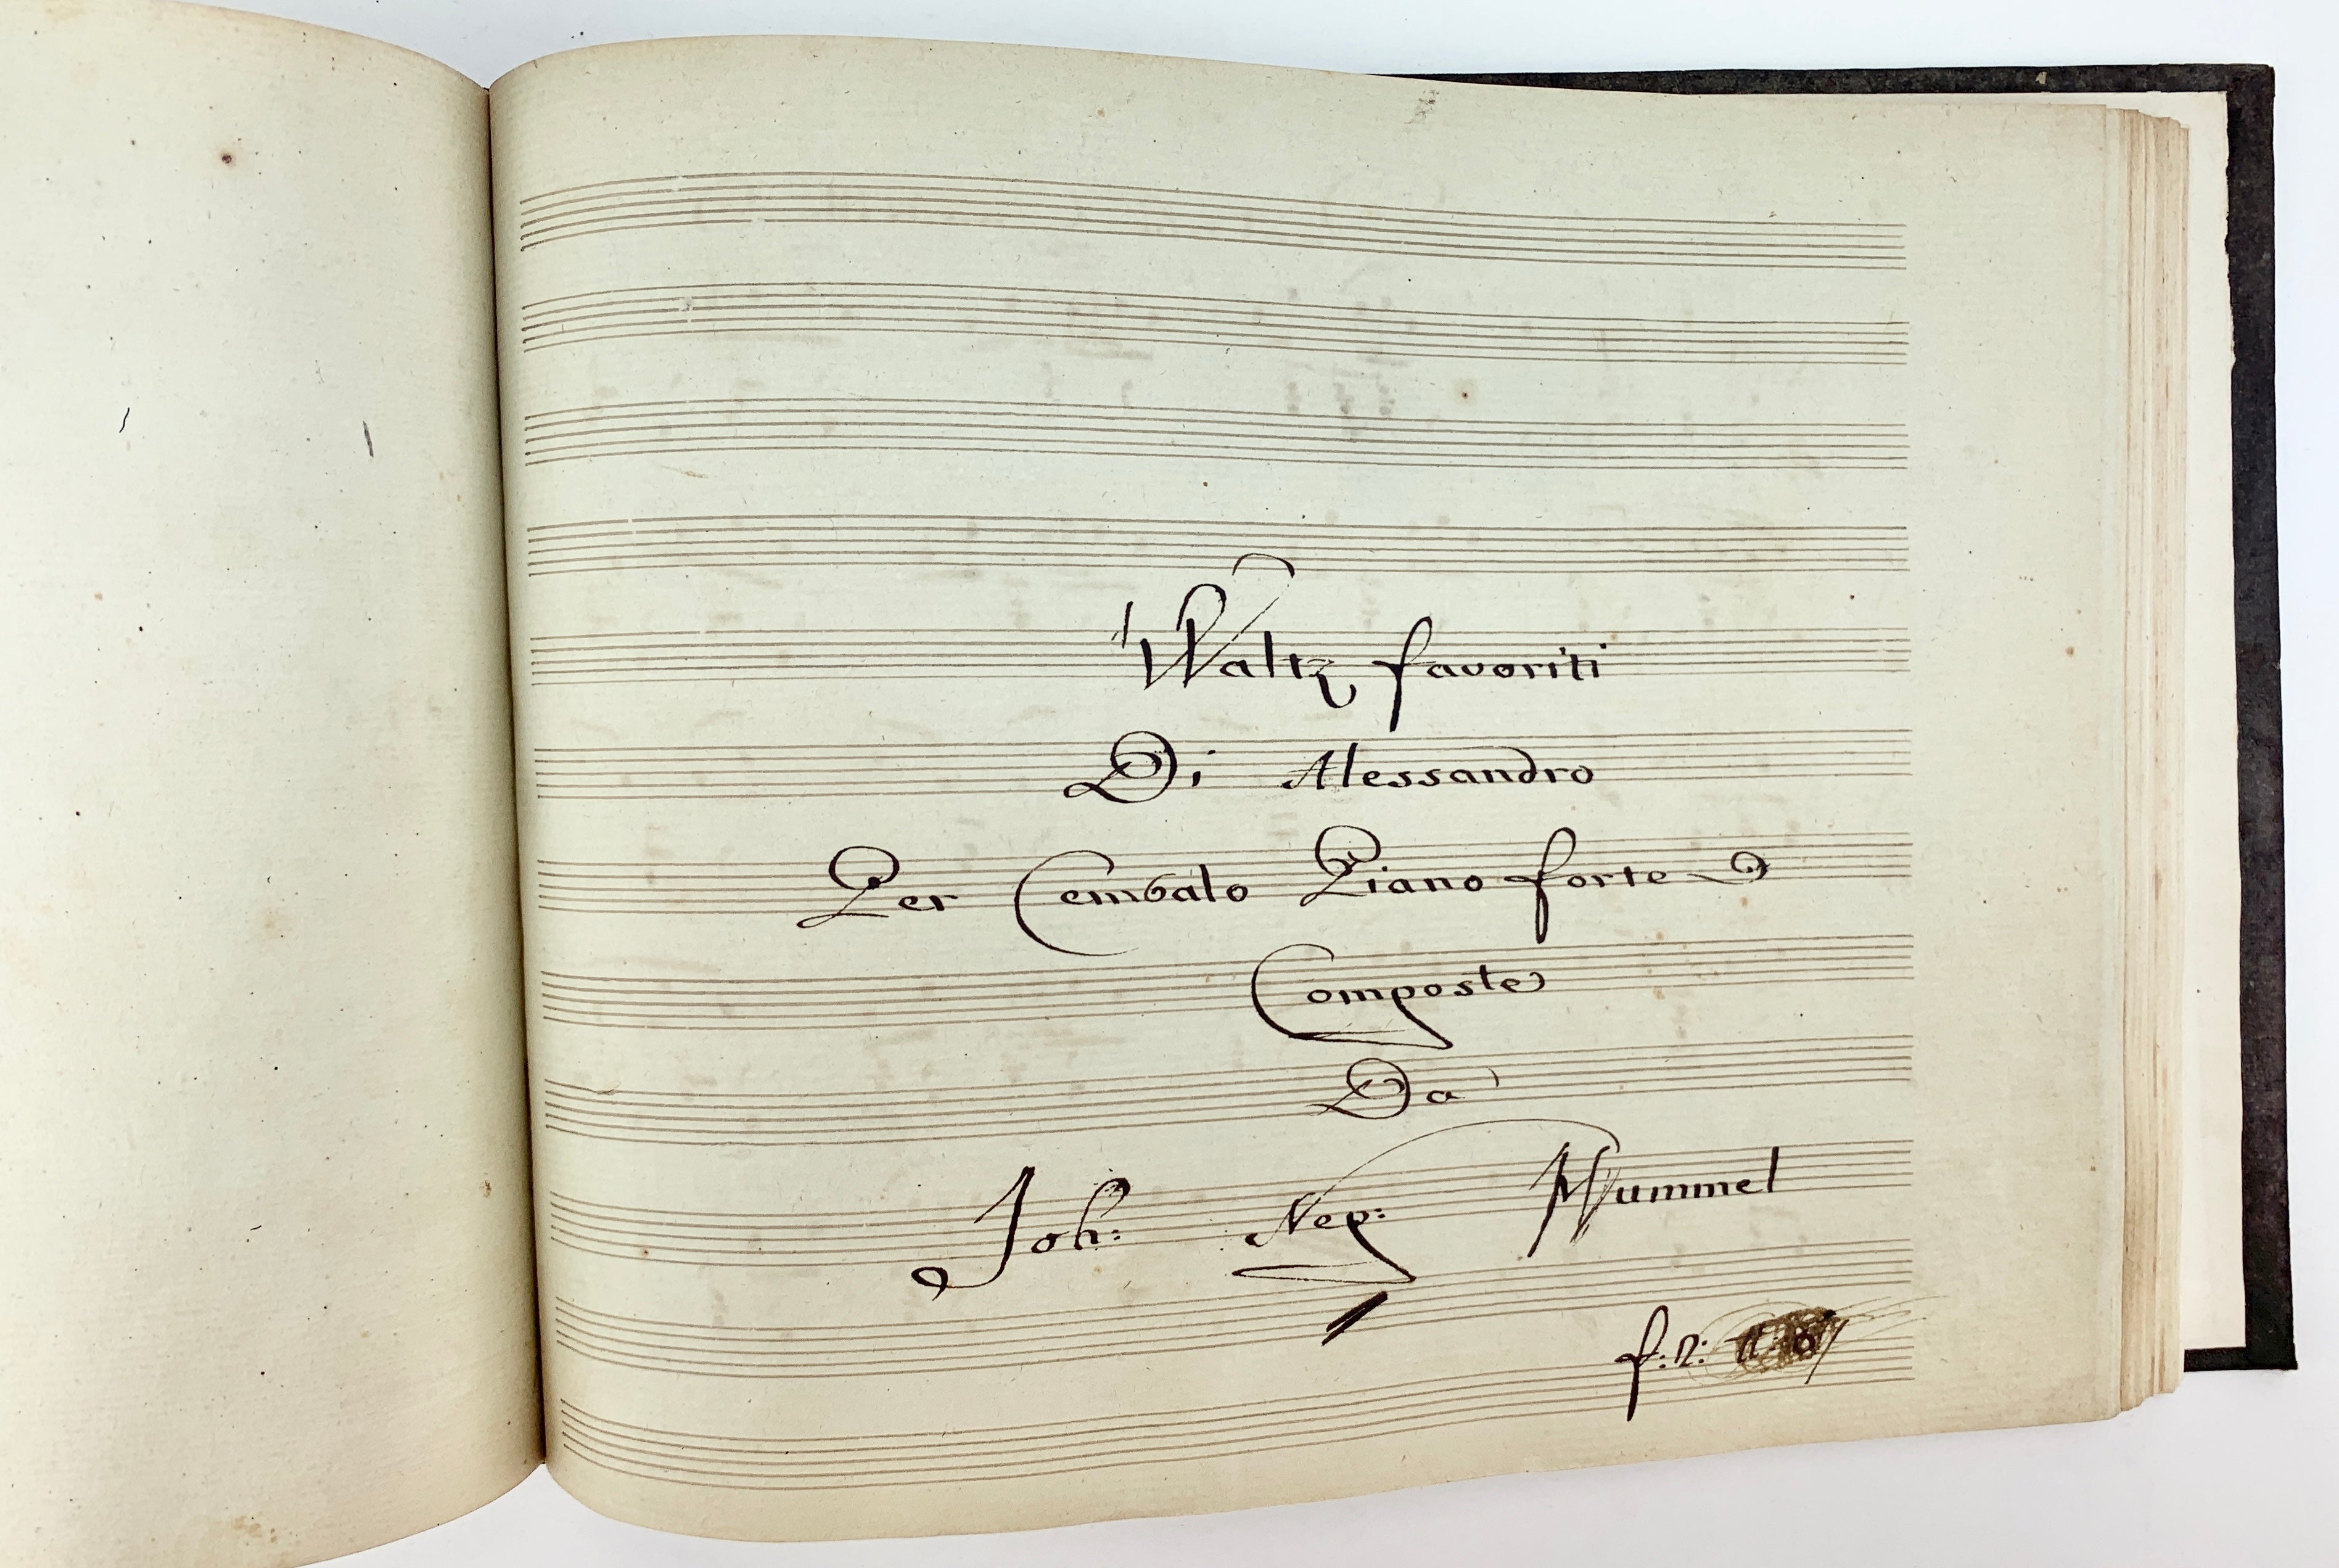 Waltz favoriti
Di Alessandro
Per Cembalo Piano forte
Composte
Da
Joh: Nep: Hummel
f: n: